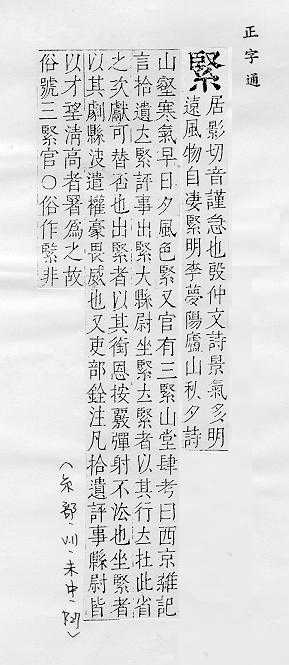 正字通
緊
居影切音謹急也殷仲文詩景氣多明
遠風物自凄緊明李夢陽廬山秋夕詩
山壑寒氣早日夕風色緊又官有三緊山堂肆考曰西京雜記
言拾遺厺緊評事出緊大縣尉坐緊厺緊者以其行厺扗此省
之次獻可替否也出緊者以其銜恩按覈彈射不法也坐緊者
以其劇縣決遣權豪畏威也又吏部銓注凡拾遺評事縣尉皆
以才望清高者署爲之故
俗號三緊官○俗作非
(糸部·未中·